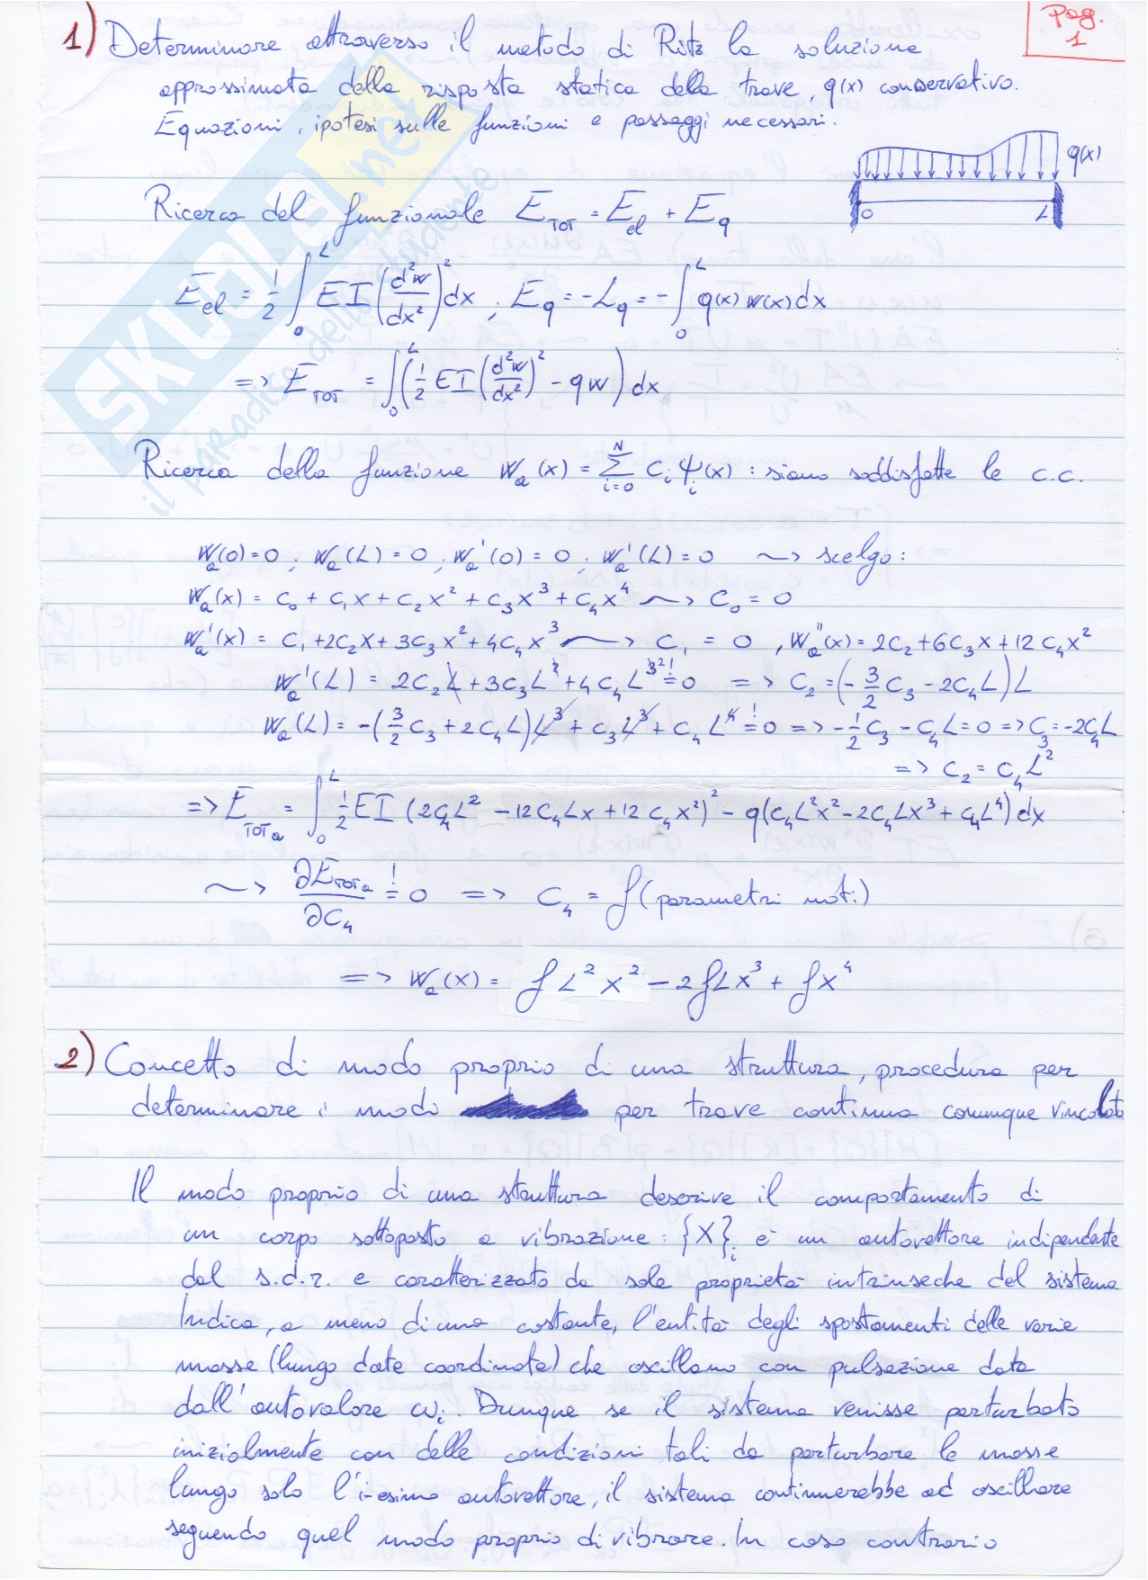 Pag. 1
1) Determinare attraverso il metodo di Ritz la soluzione
approssimata della risposta statica della trave, q(x) conservativo.
Equazioni, ipotesi sulle funzioni e passaggi necessari.
q(x)
0 L
Ricerca del funzionale E_TOT = E_el + E_q
E_el = 1/2 ∫₀ᴸ EI (d²w/dx²)² dx ; E_q = -L_q = -∫₀ᴸ q(x) w(x) dx
=> E_TOT = ∫₀ᴸ (1/2 EI (d²w/dx²)² - qw) dx
Ricerca della funzione w_a(x) = Σ_{i=0}^{N} c_i ψ_i(x) : siano soddisfatte le c.c.
w_a(0) = 0 ; w_a(L) = 0 ; w_a'(0) = 0 ; w_a'(L) = 0 ~> scelgo:
w_a(x) = c₀ + c₁x + c₂x² + c₃x³ + c₄x⁴ ~> c₀ = 0
w_a'(x) = c₁ + 2c₂x + 3c₃x² + 4c₄x³ ~> c₁ = 0 , w_a''(x) = 2c₂ + 6c₃x + 12c₄x²
w_a'(L) = 2c₂L + 3c₃L² + 4c₄L³ = 0 => c₂ = (-3/2 c₃ - 2c₄L)L
w_a(L) = -(3/2 c₃ + 2c₄L)L³ + c₃L³ + c₄L⁴ = 0 => -1/2 c₃ - c₄L = 0 => c₃ = -2c₄L
=> c₂ = c₄L²
=> E_TOTa = ∫₀ᴸ 1/2 EI (2c₄L² - 12c₄Lx + 12c₄x²)² - q(c₄L²x² - 2c₄Lx³ + c₄L⁴) dx
~> ∂E_TOTa/∂c₄ = 0 => c₄ = f(parametri noti)
=> w_a(x) = fL²x² - 2fLx³ + fx⁴
2) Concetto di modo proprio di una struttura, procedura per
determinare i modi per trave continua comunque vincolata
Il modo proprio di una struttura descrive il comportamento di
un corpo sottoposto a vibrazione: {X}_i è un autovettore indipendente
dal s.d.r. e caratterizzato da sole proprietà intrinseche del sistema
Indica, a meno di una costante, l'entità degli spostamenti delle varie
masse (lungo date coordinate) che oscillano con pulsazione data
dall'autovalore ω_i. Dunque se il sistema venisse perturbato
inizialmente con delle condizioni tali da perturbare le masse
lungo solo l'i-esimo autovettore, il sistema continuerebbe ad oscillare
seguendo quel modo proprio di vibrare. In caso contrario
SKUOLA.net